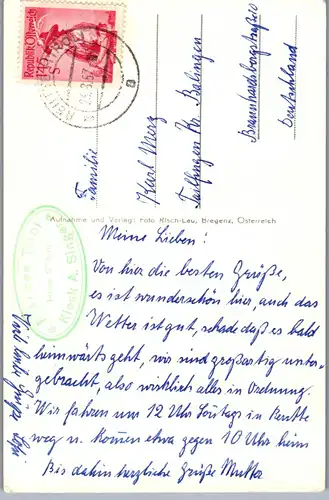 Republik Österreich
Familie
Karl Merz
Tailfingen Kr. Balingen
Deutschland
Aufnahme und Verlag: Foto Risch-Lau, Bregenz, Österreich
Meine Lieben!
Von hier die besten Grüße,
es ist wunderschön hier, auch das
Wetter ist gut, schade daß es bald
heimwärts geht, wir sind großartig unter-
gebracht, also wirklich alles in Ordnung.
Wir fahren um 12 Uhr Sonntags in Reutte
weg u. kommen etwa gegen 10 Uhr heim
Bis dahin herzliche Grüße Mutter